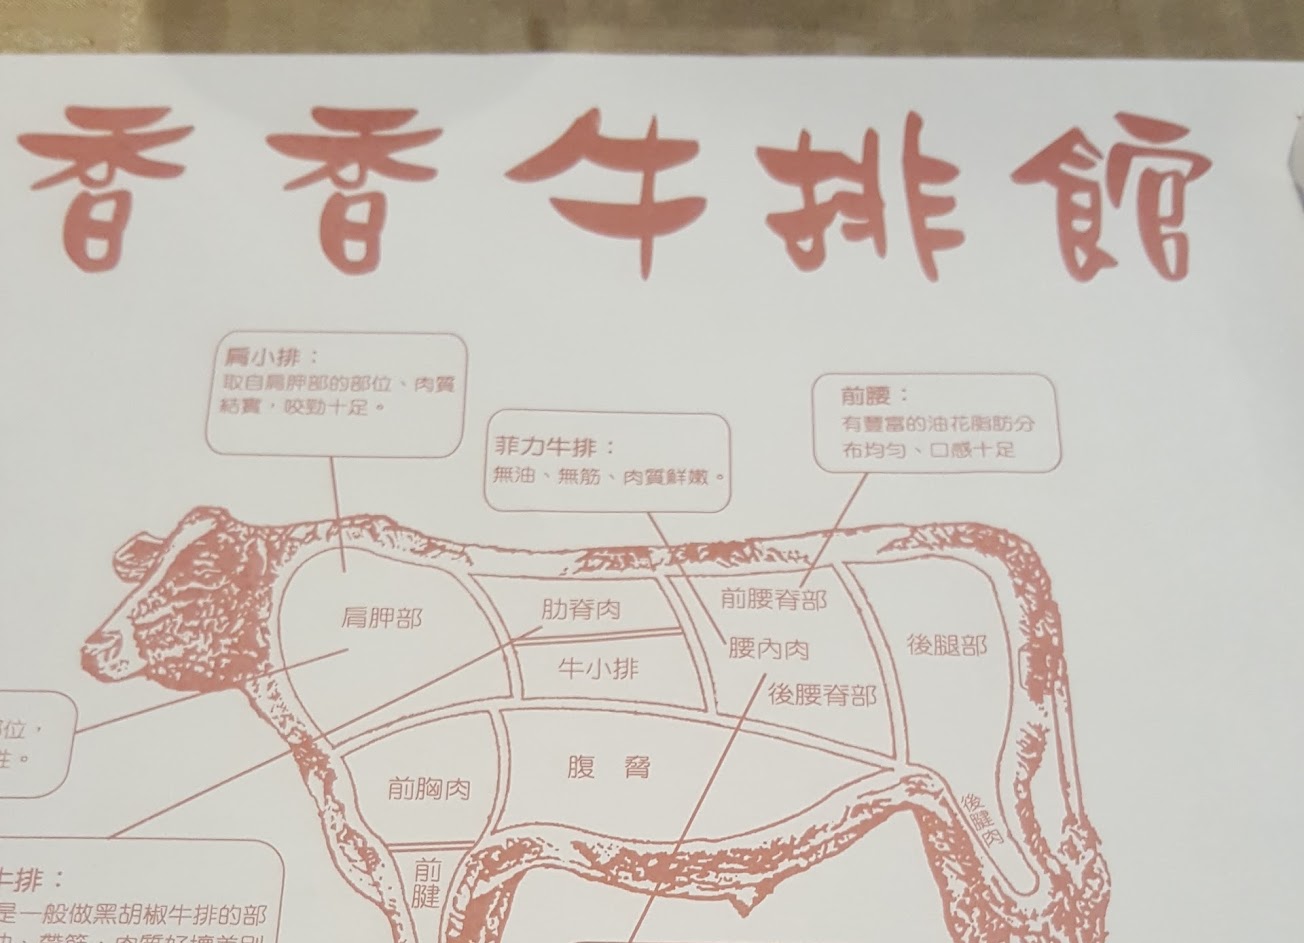 香香牛排館
肩小排：
取自肩胛部的部位、肉質
結實，咬勁十足。
菲力牛排：
無油、無筋、肉質鮮嫩。
前腰：
有豐富的油花脂肪分
布均勻、口感十足
肩胛部
肋脊肉
牛小排
前腰脊部
腰內肉
後腰脊部
後腿部
位，
性。
前胸肉
腹脅
後腱肉
前腱
牛排：
是一般做黑胡椒牛排的部
油、帶筋，肉質好壞差別